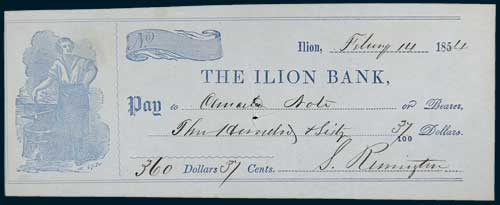 No
Ilion, Febury 14 1854
THE ILION BANK,
Pay to Note or Bearer,
Three Hundred & Sixty 37/100 Dollars.
360 Dollars 37 Cents. S. Remington